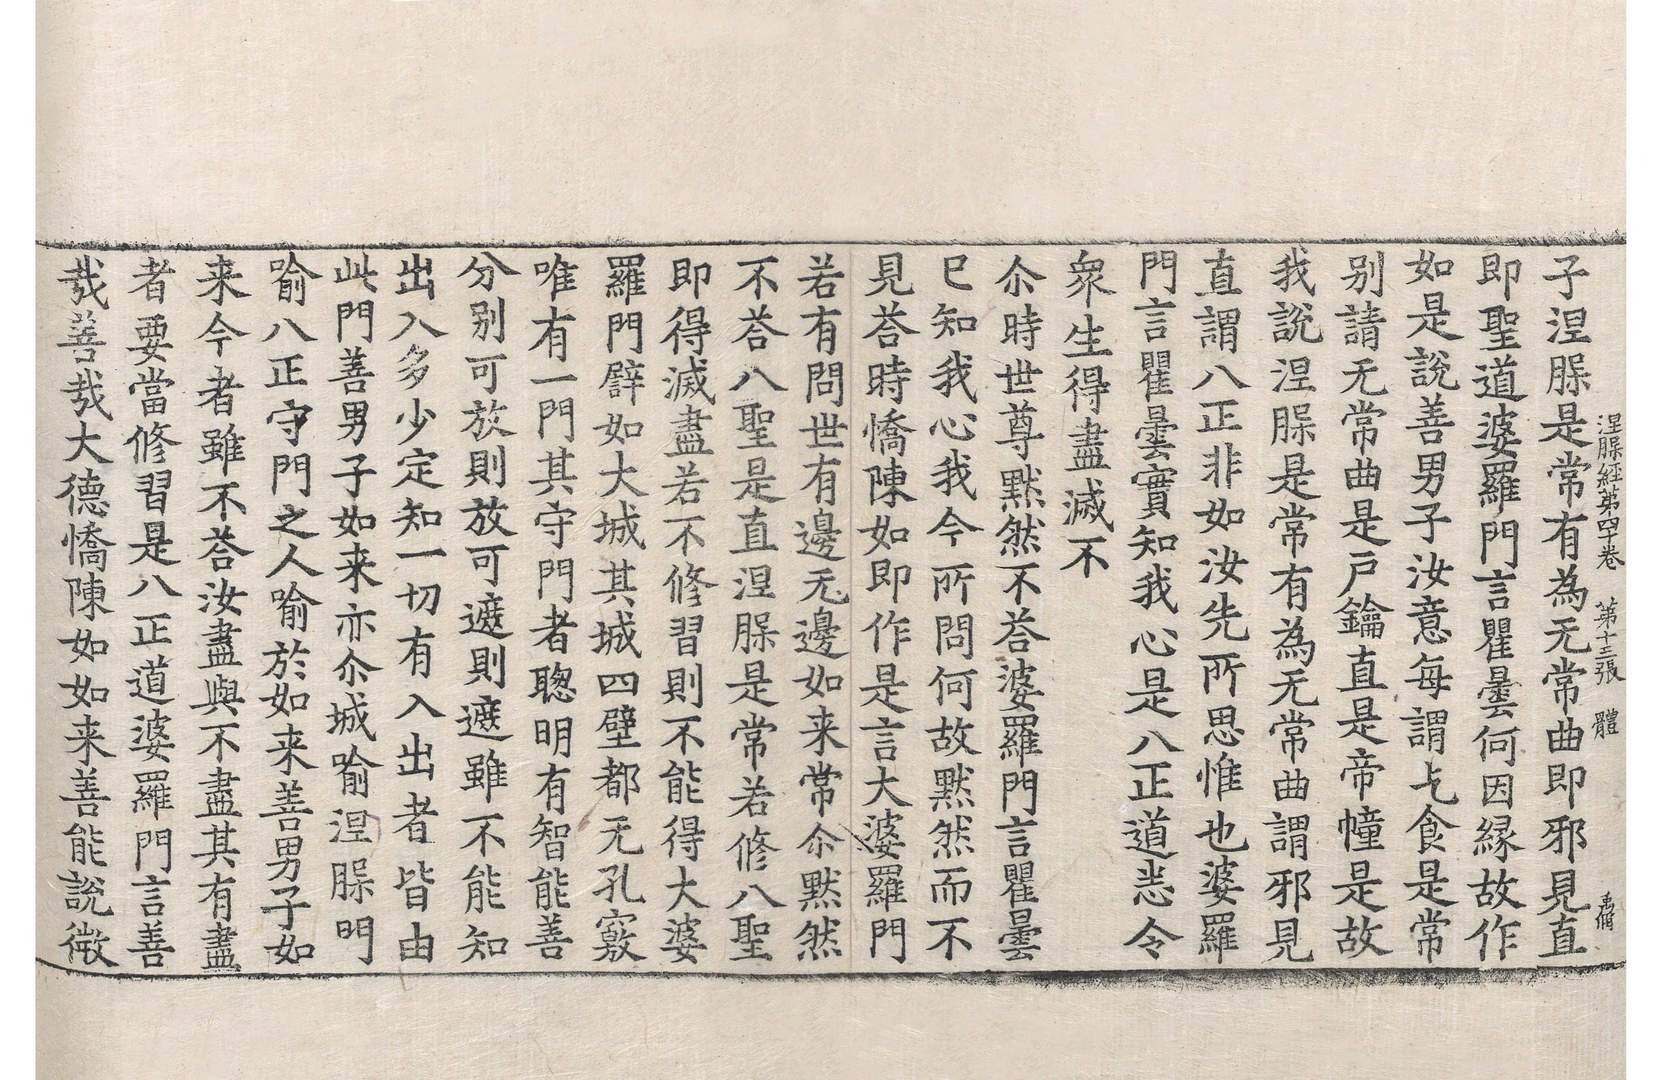 涅槃經第四十卷　第十三張　體
子涅槃是常有為无常曲即邪見直
即聖道婆羅門言瞿曇何因縁故作
如是說善男子汝意每謂乞食是常
别請无常曲是戶鑰直是帝幢是故
我說涅槃是常有為无常曲謂邪見
直謂八正非如汝先所思惟也婆羅
門言瞿曇實知我心是八正道悉令
衆生得盡滅不
尒時世尊默然不荅婆羅門言瞿曇
已知我心我今所問何故默然而不
見荅時憍陳如即作是言大婆羅門
若有問世有邊无邊如来常尒默然
不荅八聖是直涅槃是常若修八聖
即得滅盡若不修習則不能得大婆
羅門譬如大城其城四壁都无孔竅
唯有一門其守門者聰明有智能善
分别可放則放可遮則遮雖不能知
出入多少定知一切有入出者皆由
此門善男子如来亦尒城喻涅槃門
喻八正守門之人喻於如来善男子如
来今者雖不荅汝盡與不盡其有盡
者要當修習是八正道婆羅門言善
哉善哉大德憍陳如如来善能說微